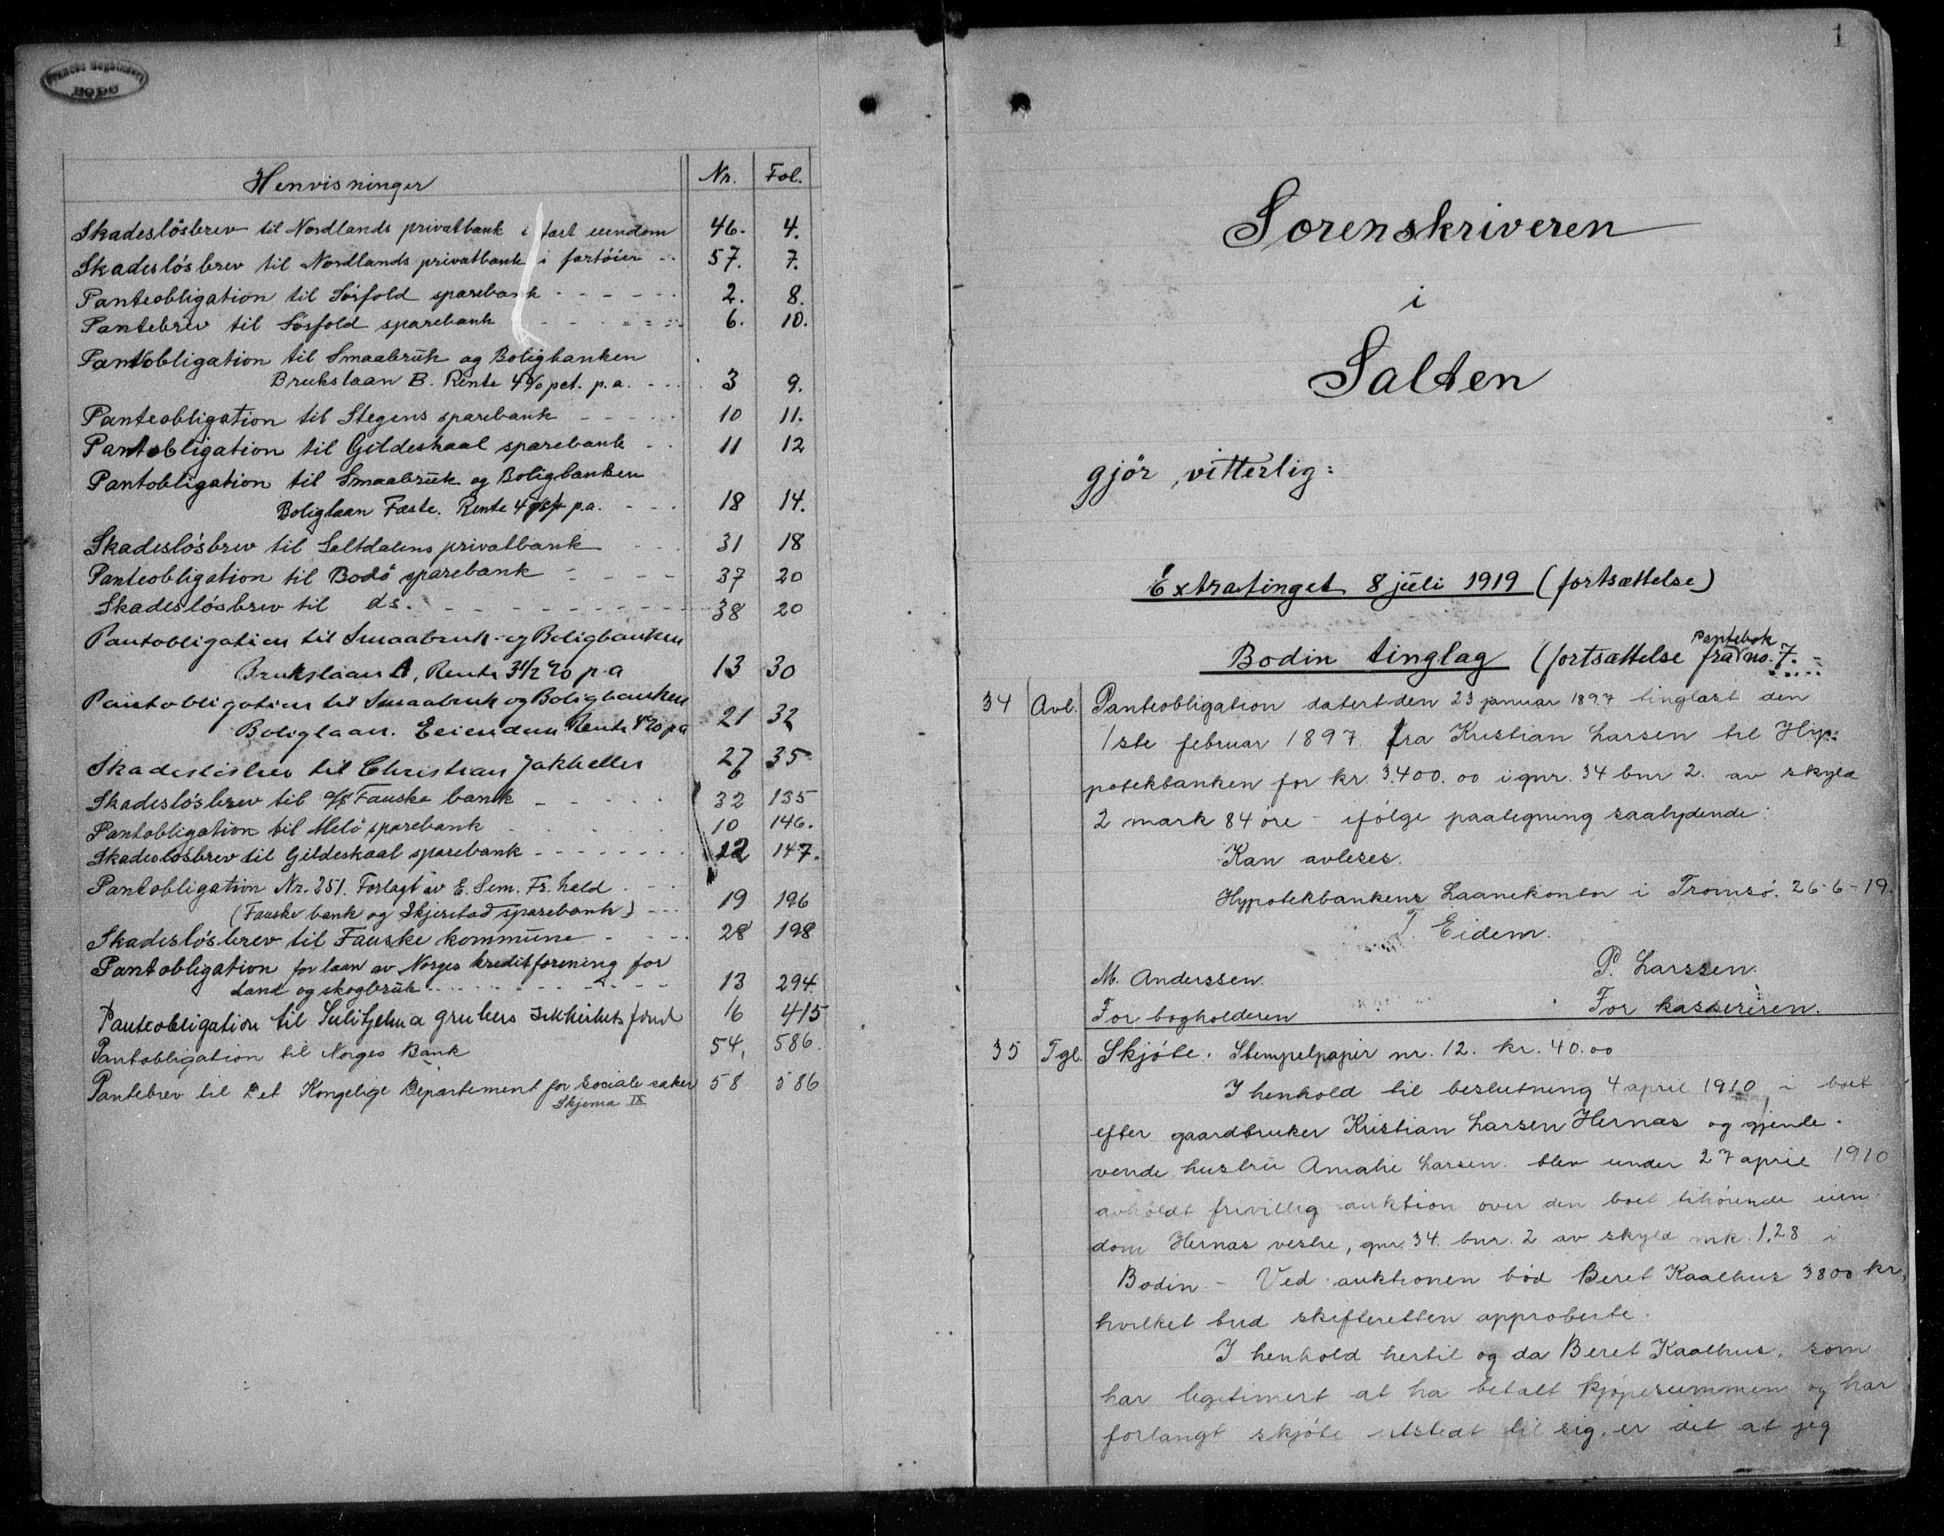 Francke Bogbinderi
BODØ
Henvisninger Nr. Fol.
Skadesløsbrev til Nordlands privatbank i fast eiendom 46. 4.
Skadesløsbrev til Nordlands privatbank i fartøier 57. 7.
Panteobligation til Sørfold sparebank 2. 8.
Pantebrev til Sørfold sparebank 6. 10.
Pantobligation til Smaabruk og Boligbanken
Brukslaan B. Rente 4% pct. p.a. 3 9.
Panteobligation til Stegens sparebank 10 11.
Pantobligation til Gildeskaal sparebank 11 12
Pantobligation til Smaabruk og Boligbanken
Boliglaan Fæste. Rente 4 pct p.a. 18 14.
Skadesløsbrev til Saltdalens privatbank 31 18
Panteobligation til Bodø sparebank 37 20
Skadesløsbrev til ds. 38 20
Pantobligation til Smaabruk- og Boligbanken
Brukslaan A, Rente 3 1/2 % p.a 13 30
Pantobligation til Smaabruk og Boligbanken
Boliglaan. Eiendom Rente 4% p a 21 32
Skadesløsbrev til Christian Jakhelln 27 35
Skadesløsbrev til a/s Fauske bank 32 135
Pantobligation til Melø sparebank 10 146.
Skadesløsbrev til Gildeskaal sparebank 12 147.
Pantobligation Nr. 251. Forlagt av E. Sem. Fr.hald
(Fauske bank og Skjerstad sparebank) 19 196
Skadesløsbrev til Fauske kommune 28 198
Pantobligation for laan av Norges kreditforening for
land og skogbruk 13 294
Panteobligation til Sulitjelma grubers Sikkerhets fond 16 415
Pantobligation til Norges Bank 54, 586.
Pantebrev til Det Kongelige Departement for Sociale saker 58 586
Skjema IX
1
Sorenskriveren
i
Salten
gjør vitterlig:
Extratinget 8 juli 1919 (fortsættelse)
Bodin tinglag (fortsættelse fra Pantebok no. 7.
34 Avl. Panteobligation datert den 23 januar 1897 tinglæst den
1ste februar 1897 fra Kristian Larsen til Hyp=
potekbanken for kr. 3.400.00 i gnr. 34 bnr 2. av skyld
2 mark 84 øre - ifølge paategning saalydende:
Kan avleses.
Hypotekbankens Laanekontor i Tromsø. 26-6-19.
T. Eidem.
M. Anderssen. P. Larssen.
For bogholderen For kassereren.
35 Tgl. Skjøte. Stempelpapir nr. 12. kr. 40.00
I henhold til beslutning 4 april 1910 i boet
efter gaardbruker Kristian Larsen Hernes og gjenle-
vende hustru Amalie Larsen. blev under 27 april 1910
avholdt frivillig auktion over den boet tilhørende eien-
dom Hernes vestre, gnr. 34. bnr. 2 av skyld mk. 1,28 i
Bodin. - Ved auktionen bød Beret Kaalhus 3800 kr,
hvilket bud skifteretten approberte.
I henhold hertil og da Beret Kaalhus, som
har legitimert at ha betalt kjøpesummen og har
forlangt skjøte utstedt til sig, er det at jeg